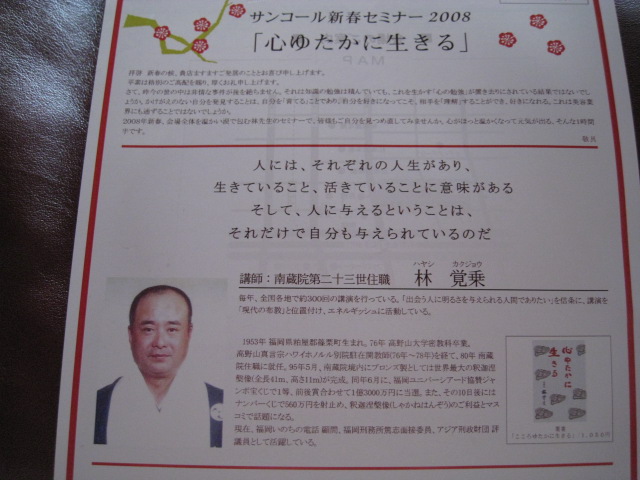 サンコール新春セミナー 2008
「心ゆたかに生きる」
拝啓 新春の候、貴店ますますご発展のこととお喜び申し上げます。
平素は格別のご高配を賜り、厚くお礼申し上げます。
敬具
人には、それぞれの人生があり、
生きていること、活きていることに意味がある
そして、人に与えるということは、
それだけで自分も与えられているのだ
ハヤシ カクジョウ
講師：南蔵院第二十三世住職 林 覚乗
毎年、全国各地で約300回の講演を行っている。「出会う人に明るさを与えられる人間でありたい」を信条に、講演を
「現代の布教」と位置付け、エネルギッシュに活動している。
1953年 福岡県粕屋郡篠栗町生まれ。76年 高野山大学密教科卒業。
高野山真言宗ハワイホノルル別院駐在開教師(76年～78年)を経て、80年 南蔵
院住職に就任。95年5月、南蔵院境内にブロンズ製としては世界最大の釈迦涅
槃像(全長41m、高さ11m)が完成。同年6月に、福岡ユニバーシアード協賛ジャン
ボ宝くじで1等、前後賞合わせて1億3000万円に当選。また、その10日後には
ナンバーくじで560万円を射止め、釈迦涅槃像(しゃかねはんぞう)のご利益とマス
コミで話題になる。
現在、福岡いのちの電話 顧問、福岡刑務所篤志面接委員、アジア刑政財団 評
議員として活躍している。
心ゆたかに
生きる
著書
「こころゆたかに生きる」